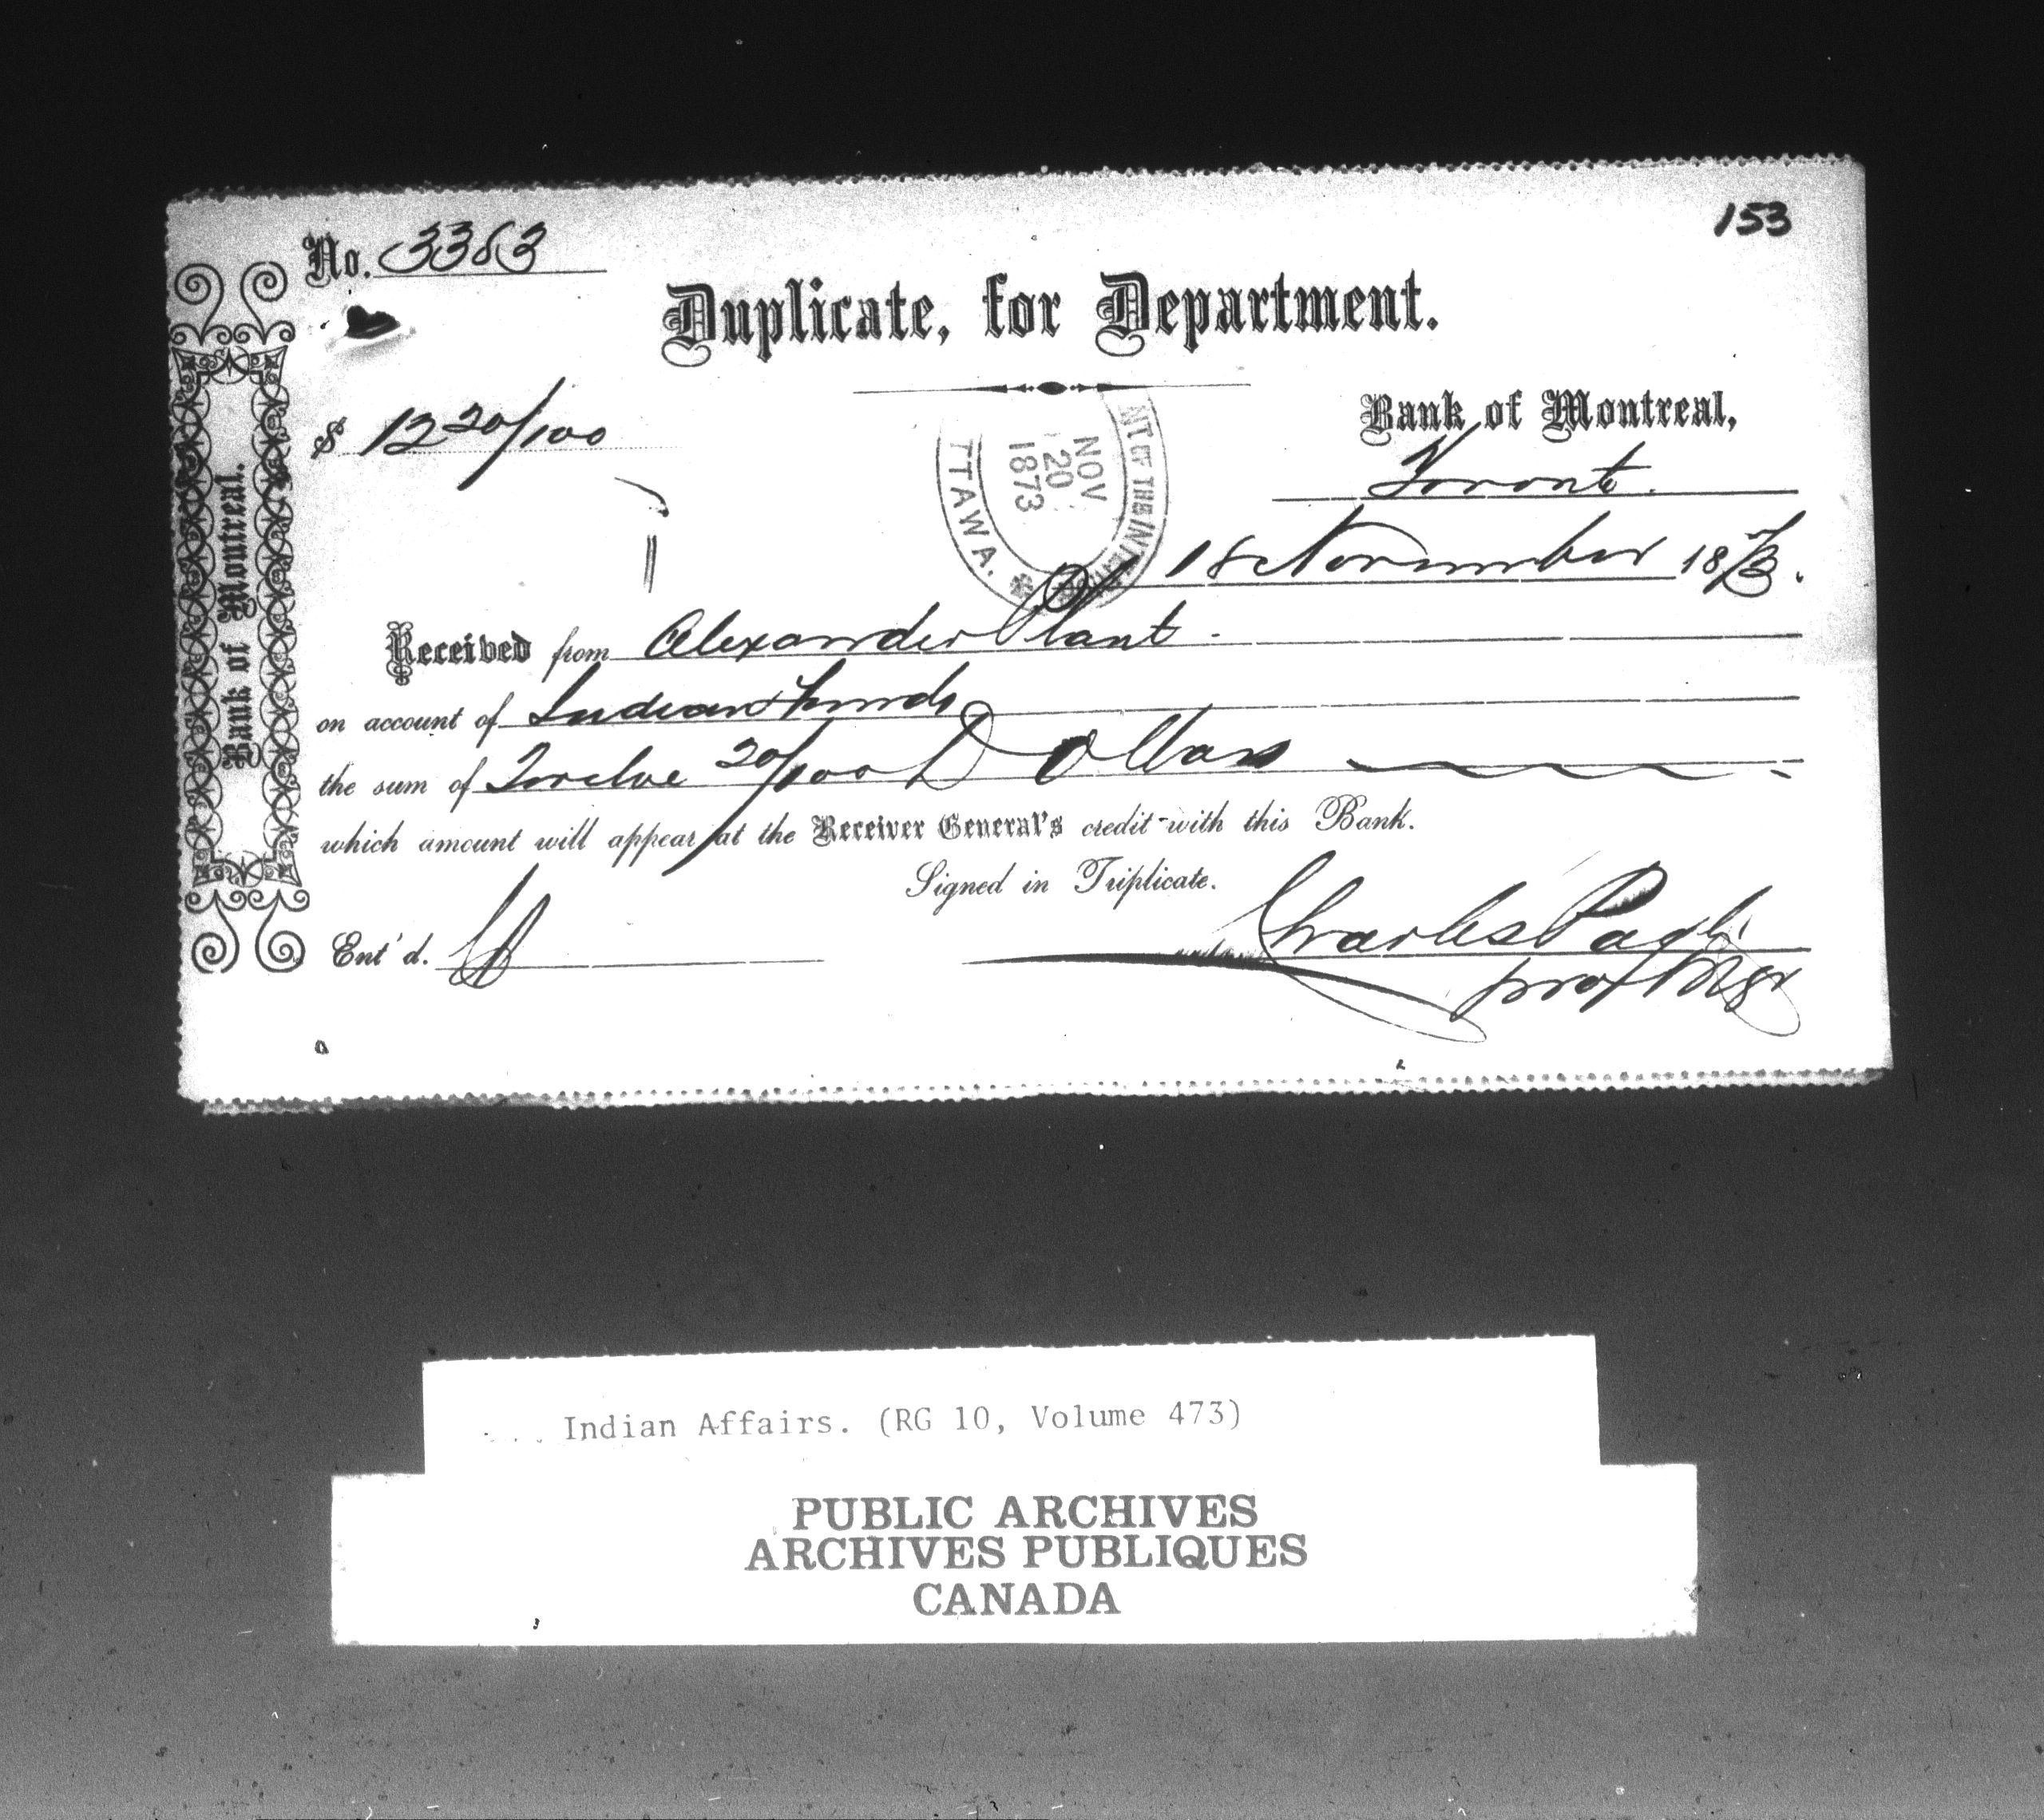 No. 3383
153
Duplicate, for Department.
$ 12 20/100
Bank of Montreal,
Toronto.
NT OF THE INTE
NOV
20
1873
TTAWA.
18 November 1873.
Received from Alexander Plant
on account of Indian Funds
the sum of Twelve 20/100 Dollars
which amount will appear at the Receiver General's credit with this Bank.
Signed in Triplicate.
Ent'd.
Charles
pro Mgr
Bank of Montreal.
Indian Affairs. (RG 10, Volume 473)
PUBLIC ARCHIVES
ARCHIVES PUBLIQUES
CANADA